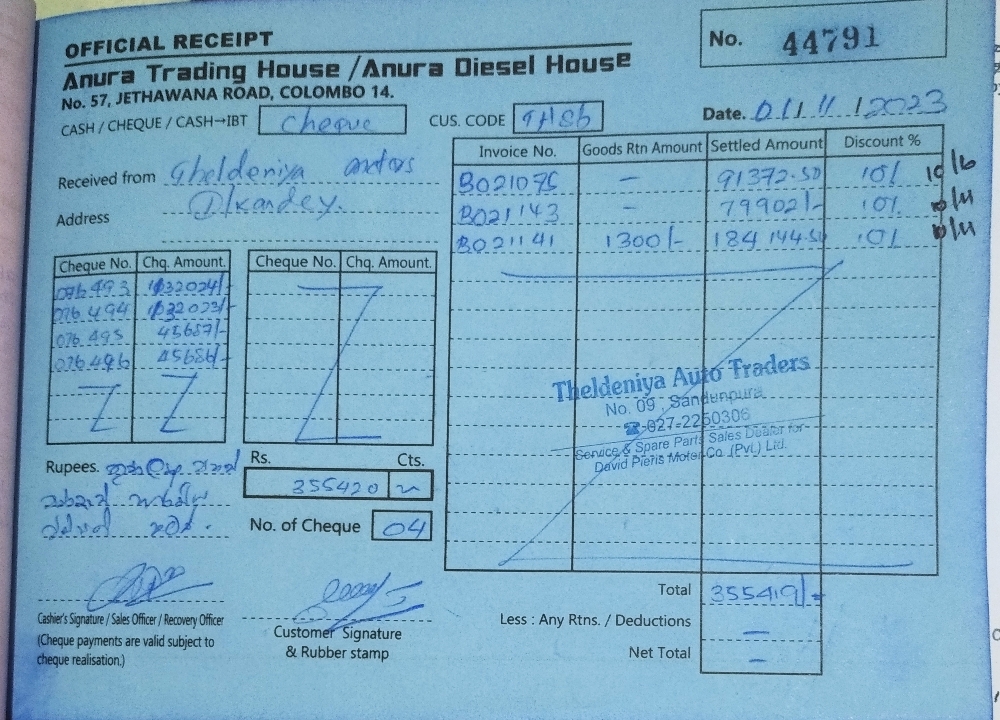 OFFICIAL RECEIPT
Anura Trading House /Anura Diesel House
No. 57, JETHAWANA ROAD, COLOMBO 14.
No. 44791
CASH / CHEQUE / CASH→IBT Cheque CUS. CODE TH86 Date. 01/11/2023
Received from Theldeniya motors
Address
Invoice No. Goods Rtn Amount Settled Amount Discount %
B021075 – 91372.50 10%
B021143 – 79902/- 10%
B021141 1300/- 184144.50 10%
Cheque No. Chq. Amount. Cheque No. Chq. Amount.
076493 132024/-
076494 132023/-
076495 45687/-
076496 45686/-
Theldeniya Auto Traders
No. 09, Sandunpura
☎-027-2250306
Service & Spare Parts Sales Dealer for
David Pieris Motor Co. (Pvt.) Ltd.
Rupees.
Rs. Cts.
355420
No. of Cheque 04
Total 355419/-
Less : Any Rtns. / Deductions –
Net Total –
Cashier's Signature / Sales Officer / Recovery Officer
(Cheque payments are valid subject to
cheque realisation.)
Customer Signature
& Rubber stamp